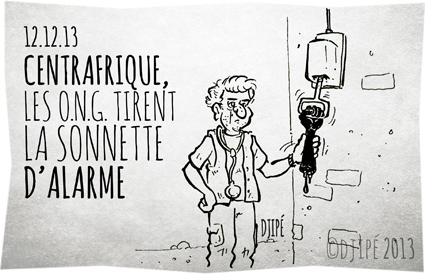 12.12.13
CENTRAFRIQUE,
LES O.N.G. TIRENT
LA SONNETTE
D'ALARME
DJIPÉ
©DJIPÉ 2013